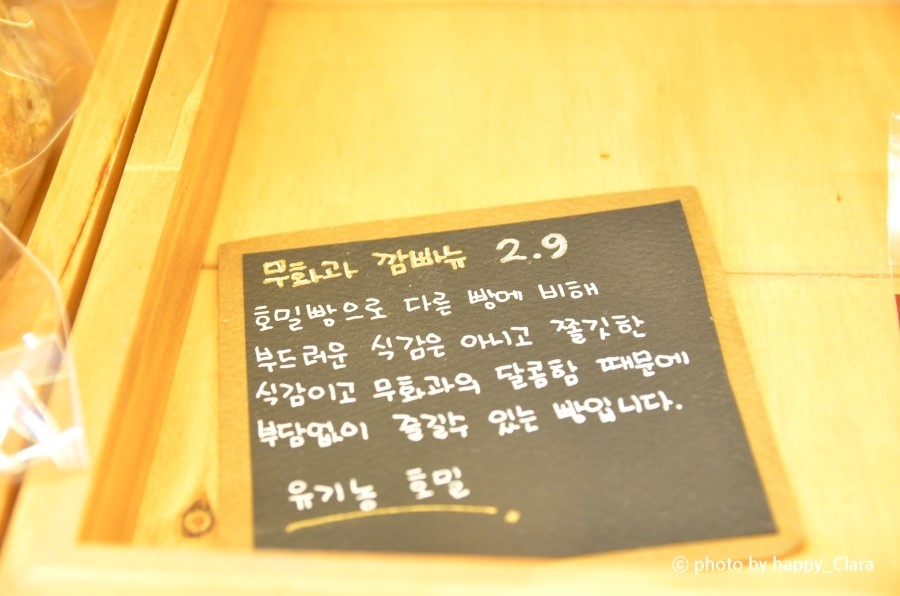 무화과 깜빠뉴 2.9
호밀빵으로 다른 빵에 비해
부드러운 식감은 아니고 쫄깃한
식감이고 무화과의 달콤함 때문에
부담없이 즐길수 있는 빵입니다.
유기농 호밀
© photo by happy_Clara